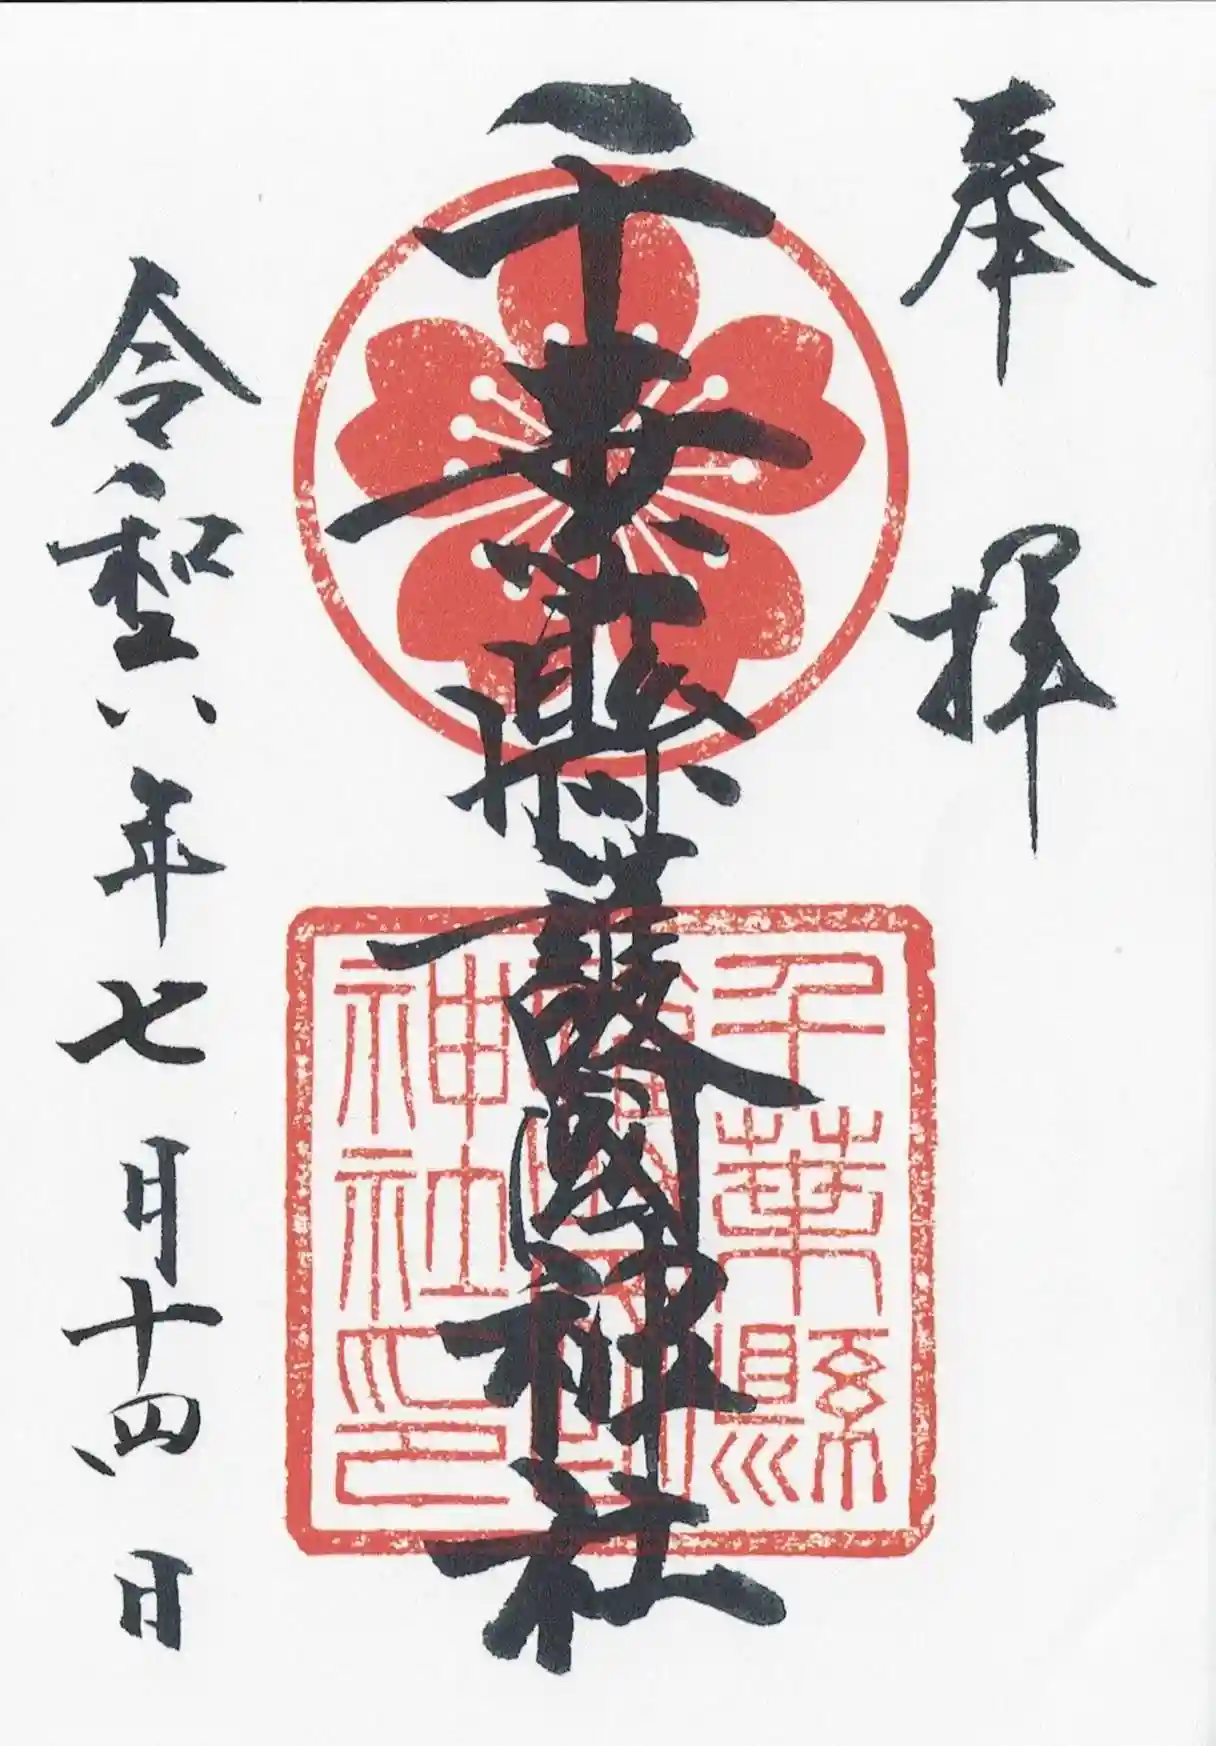 奉拝
千葉縣護國神社
千葉縣
護國
神社之印
令和六年七月十四日